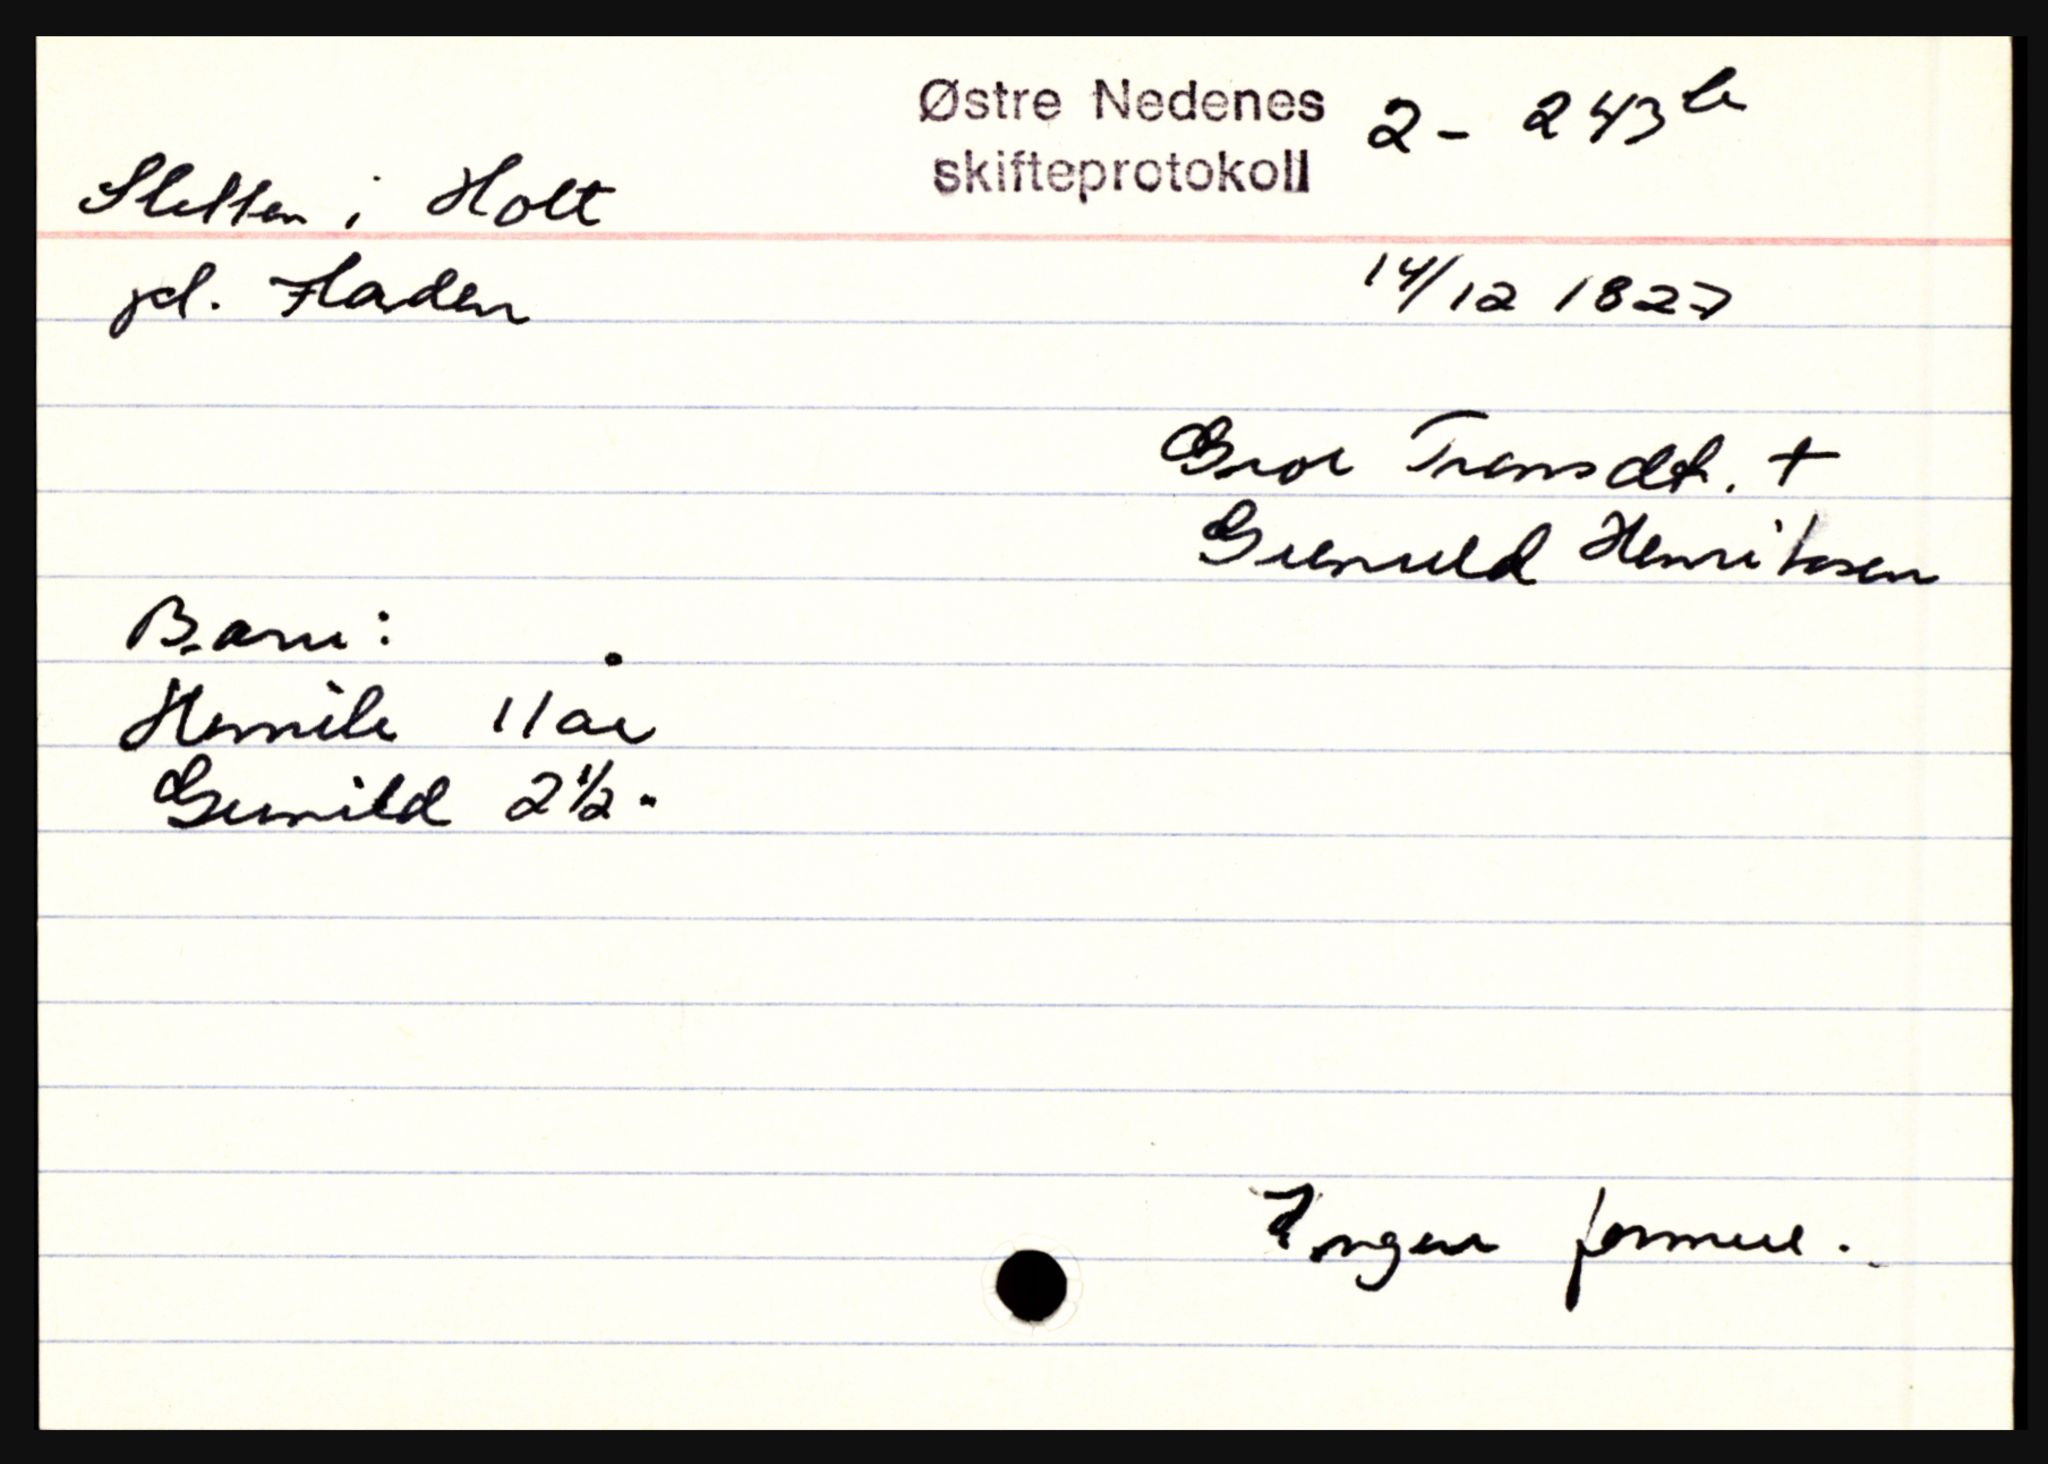 Østre Nedenes 2 - 243b
skifteprotokoll
Sletten i Holt
pl. Fladen
14/12 1827
Groe Transdt. +
Gunuld Henriksen
Barn:
Henrik 11 år
Gunild 2 1/2 "
Ingen formue.